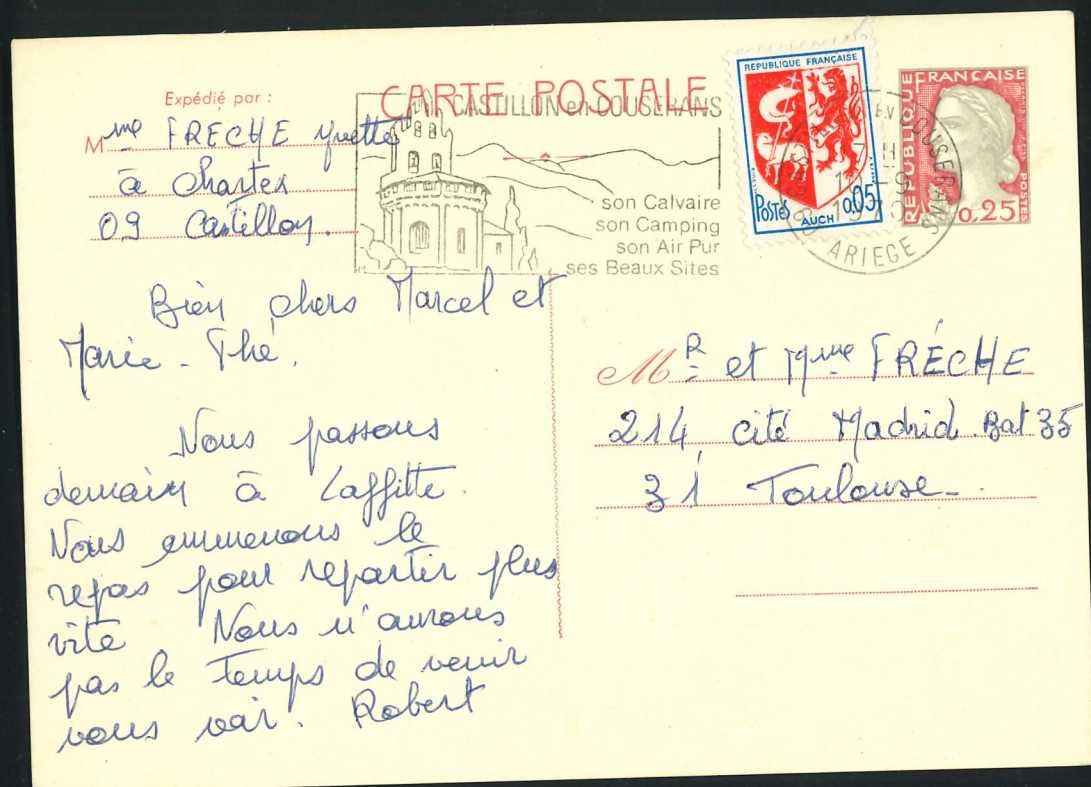 CARTE POSTALE
Expédié par :
Mme FRECHE Yvette
à
09 Castillon.
CASTILLON en COUSERANS
son Calvaire
son Camping
son Air Pur
ses Beaux Sites
REPUBLIQUE FRANÇAISE
POSTES AUCH 0.05
17 H
1970
ARIEGE
REPUBLIQUE FRANÇAISE
POSTES
0,25
Bien chers Marcel et
Marie-Thé.
Nous passons
demain à Laffitte.
Nous emmenons le
repas pour repartir plus
vite Nous n'aurons
pas le temps de venir
vous voir. Robert
MR et Mme FRÉCHE
214 cité Madrid. Bat 35
31 Toulouse_.